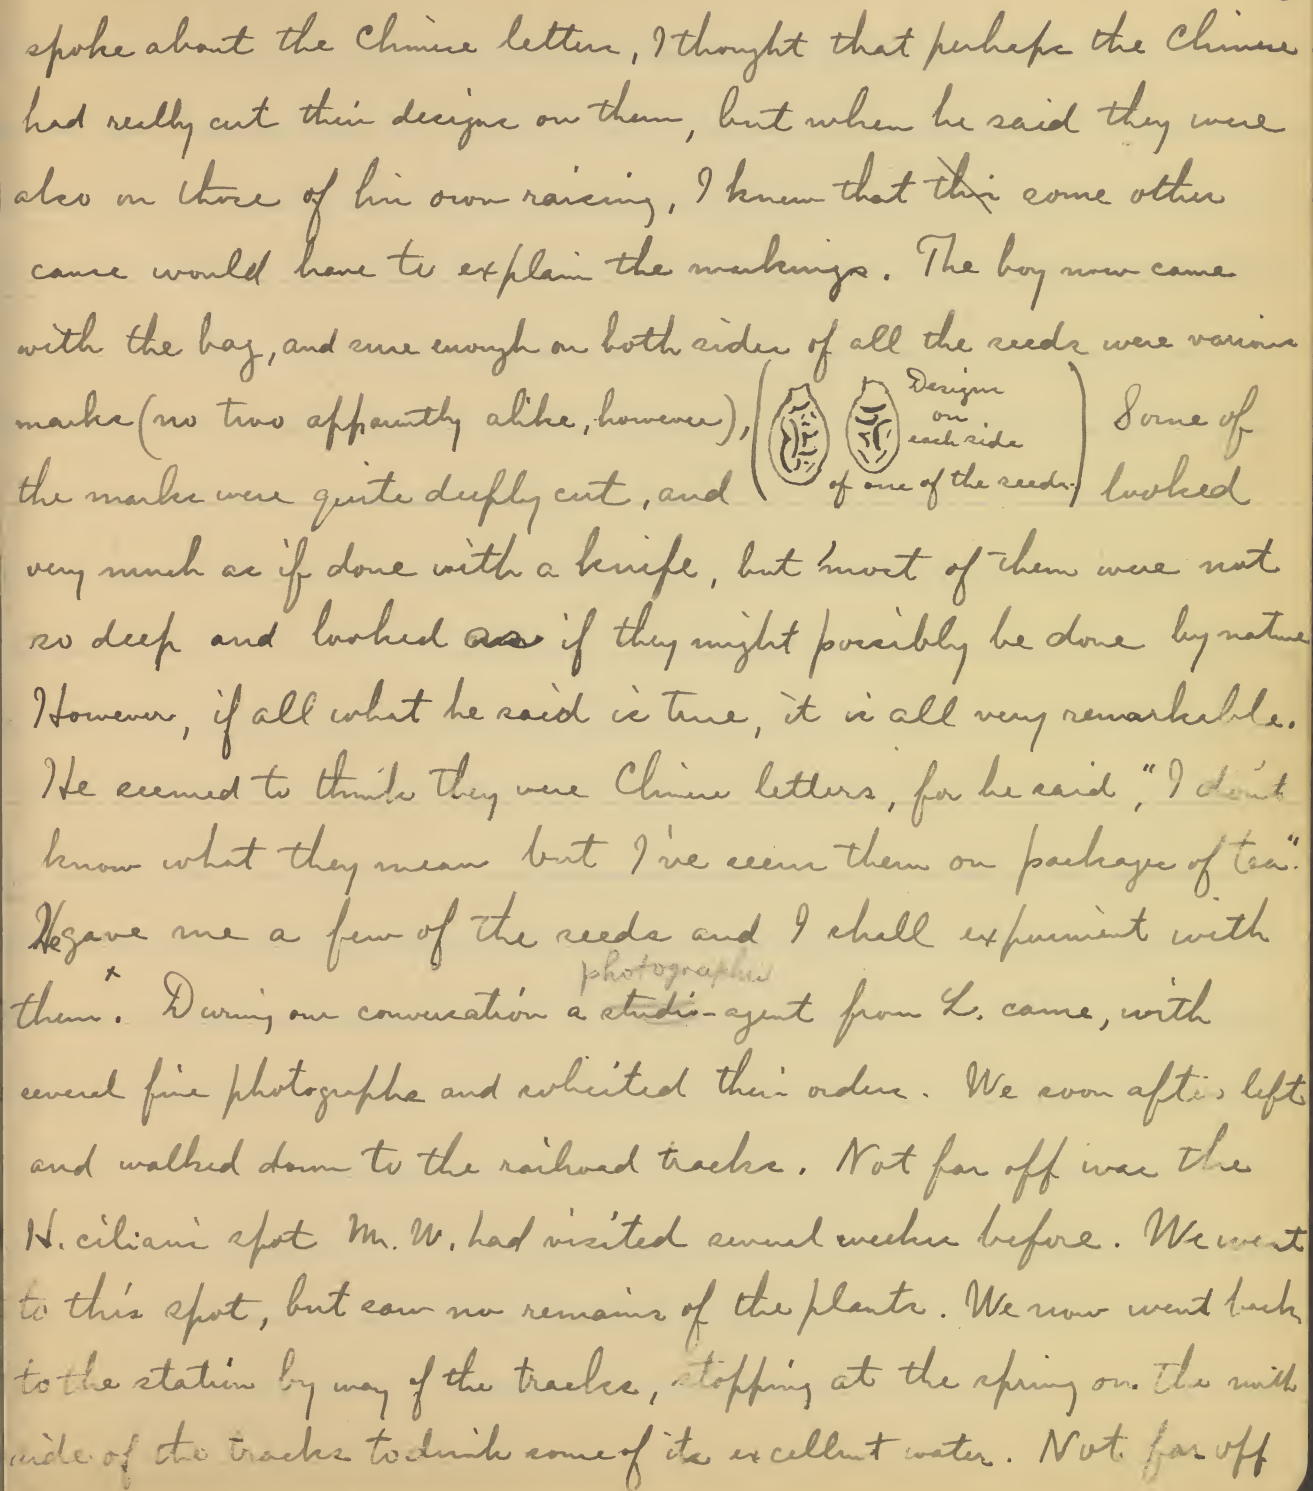 spoke about the Chinese letters, I thought that perhaps the Chinese
had really cut their designs on them, but when he said they were
also on those of his own raising, I knew that this some other
cause would have to explain the markings. The boy now came
with the bag, and sure enough on both sides of all the seeds were various
marks (no two apparently alike, however), ( Designs on each side of one of the seeds. ) Some of
the marks were quite deeply cut, and looked
very much as if done with a knife, but most of them were not
so deep and looked as if they might possibly be done by nature
However, if all what he said is true, it is all very remarkable.
He seemed to think they were Chinese letters, for he said, "I don't
know what they mean but I've seen them on packages of tea".
He gave me a few of the seeds and I shall experiment with
photographic
them x. During our conversation a studio-agent from L. came, with
several fine photographs and solicited their orders. We soon after left
and walked down to the railroad tracks. Not far off was the
H. ciliaris spot Mr. W. had visited several weeks before. We went
to this spot, but saw no remains of the plants. We now went back
to the station by way of the tracks, stopping at the spring on the north
side of the tracks to drink some of its excellent water. Not far off